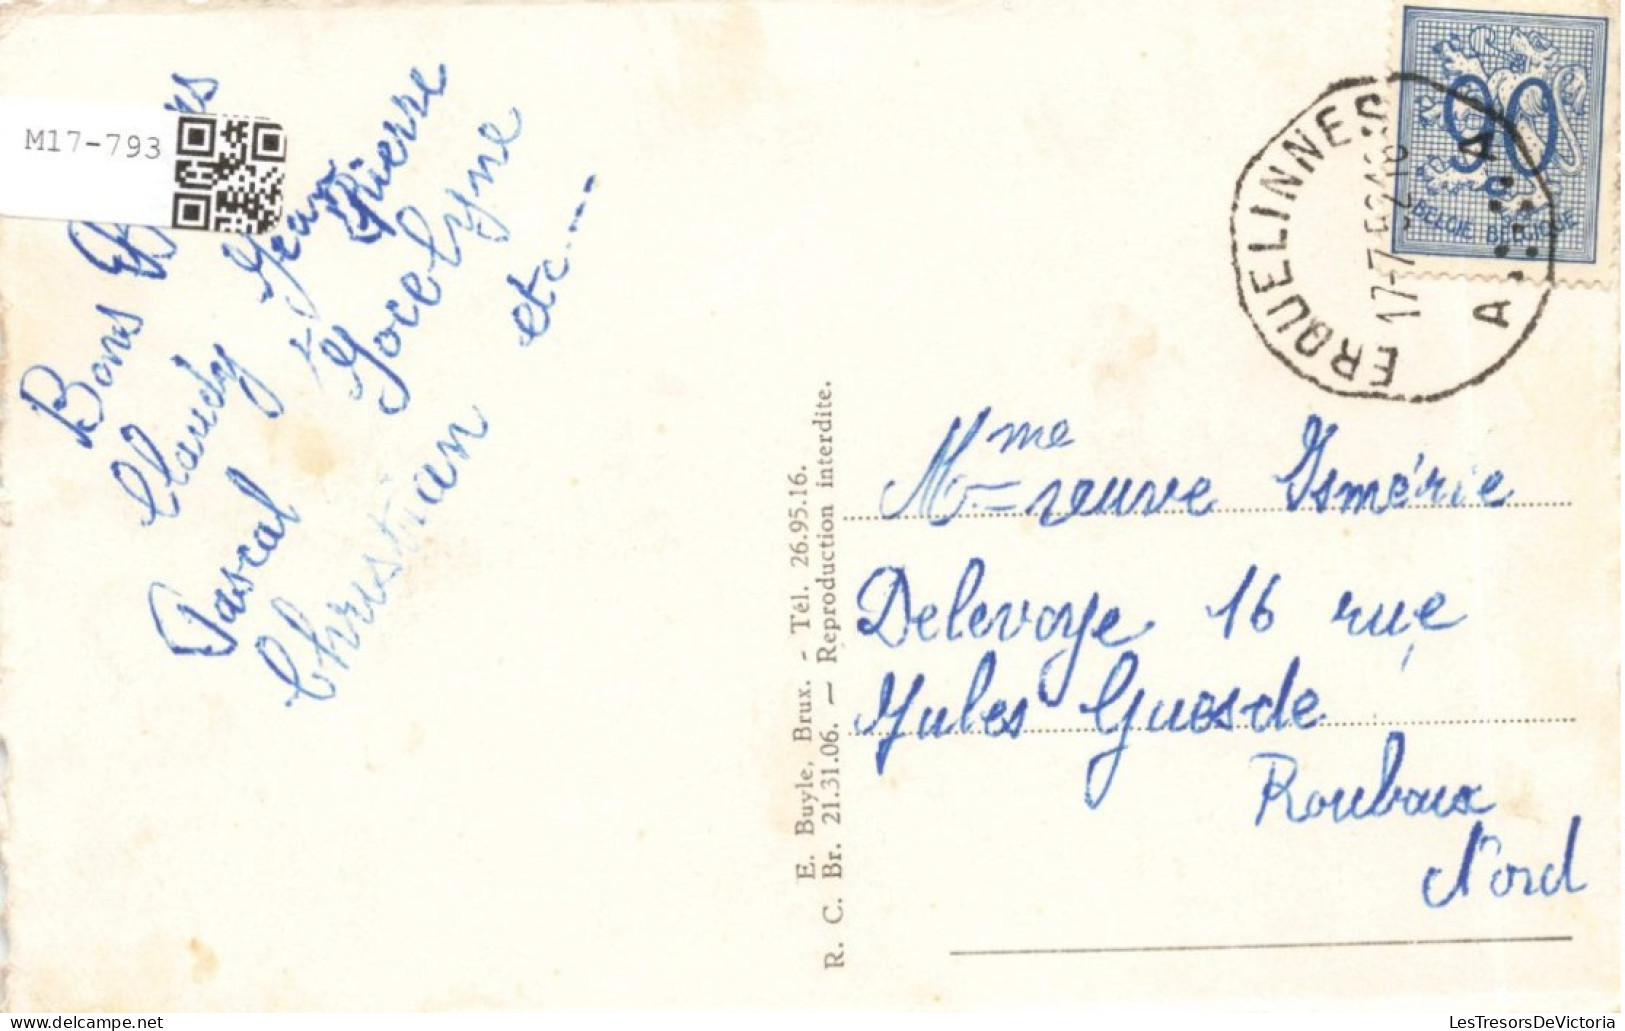 M17-793
Bons
Claudy Jean Pierre
Pascal & Jocelyne
Christian etc---
E. Buyle, Brux. - Tél. 26.95.16.
R. C. Br. 21.31.06. — Reproduction interdite.
90
BELGIE BELGIQUE
ERQUELINNES
A A
17-7-
Mme veuve Ismérie
Delevoye 16 rue
Jules Guesde
Roubaix
Nord
delcampe.net
LesTresorsDeVictoria